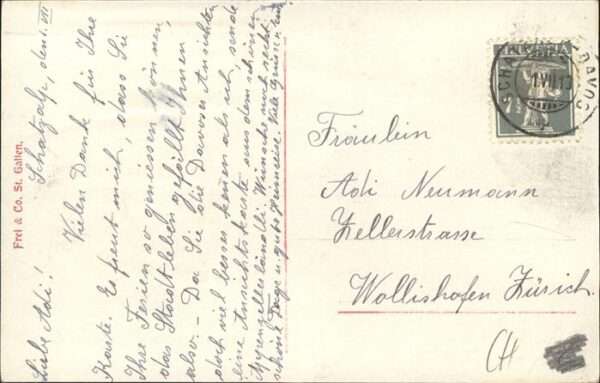 Schatzalp, den 1. VII.
Liebe Adi!
Vielen Dank für Ihre
Karte. Es freut mich, dass Sie
Ihre Ferien so geniessen können,
das Stadtleben gefällt Ihnen
also. – Da Sie die Davoser Ansichten
doch viel besser kennen als ich, sende
eine Ansichtskarte aus dem schönen
Appenzellerländli. Wünsche noch recht
schöne Tage u. gute Heimreise. Viele Grüsse
Frei & Co. St. Gallen.
HELVETIA
SCHATZALP (DAVOS)
1.VII.13
Fräulein
Adi Neumann
Zellerstrasse
Wollishofen Zürich.
CH